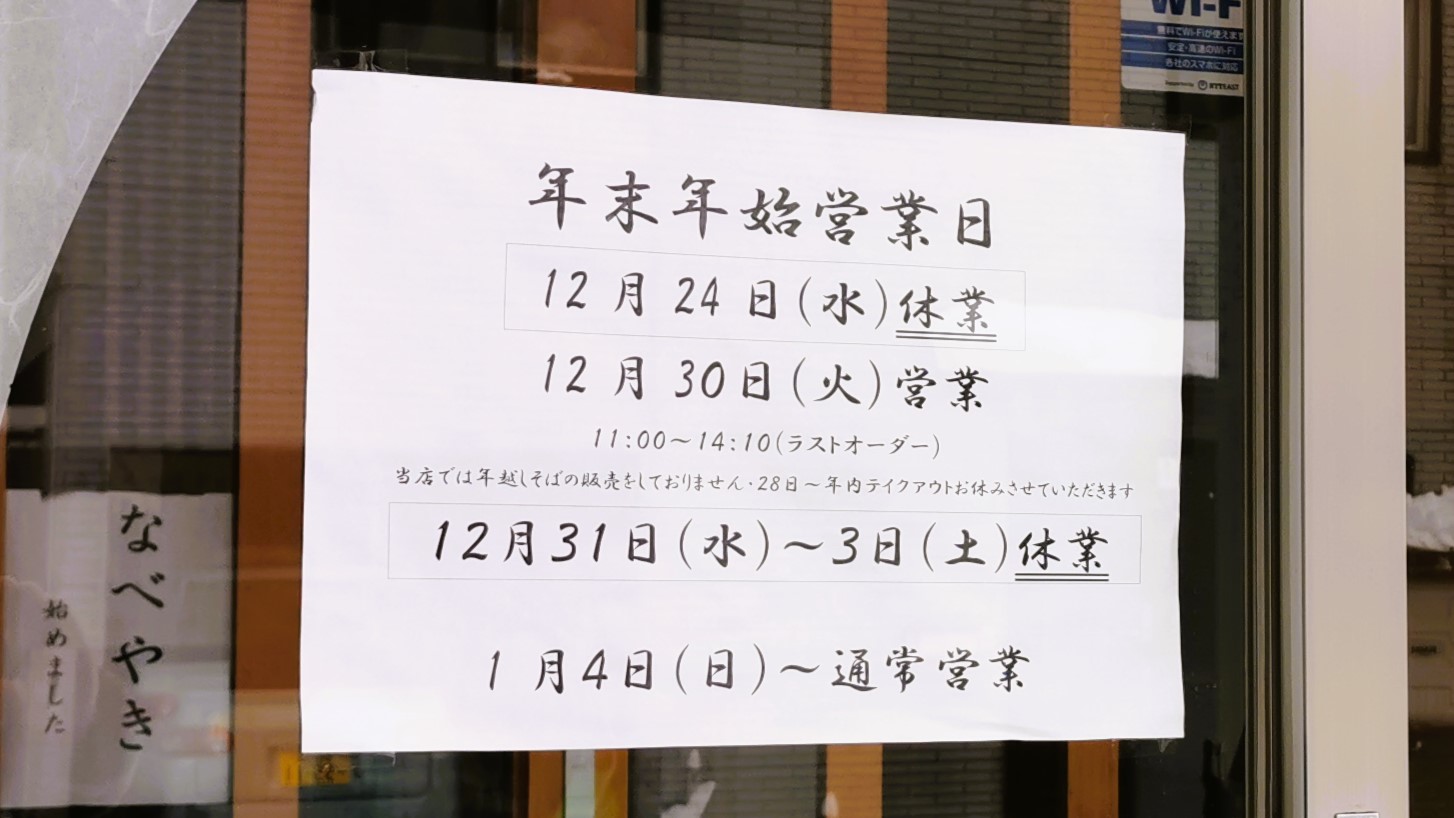 年末年始営業日
12月24日(水)休業
12月30日(火)営業
11:00～14:10(ラストオーダー)
当店では年越しそばの販売をしておりません・28日～年内テイクアウトお休みさせていただきます
12月31日(水)～3日(土)休業
1月4日(日)～通常営業
なべやき
始めました
Wi-F
無料でWi-Fiが使えます
安定・高速のWi-Fi
各社のスマホに対応
Supported by NTT EAST